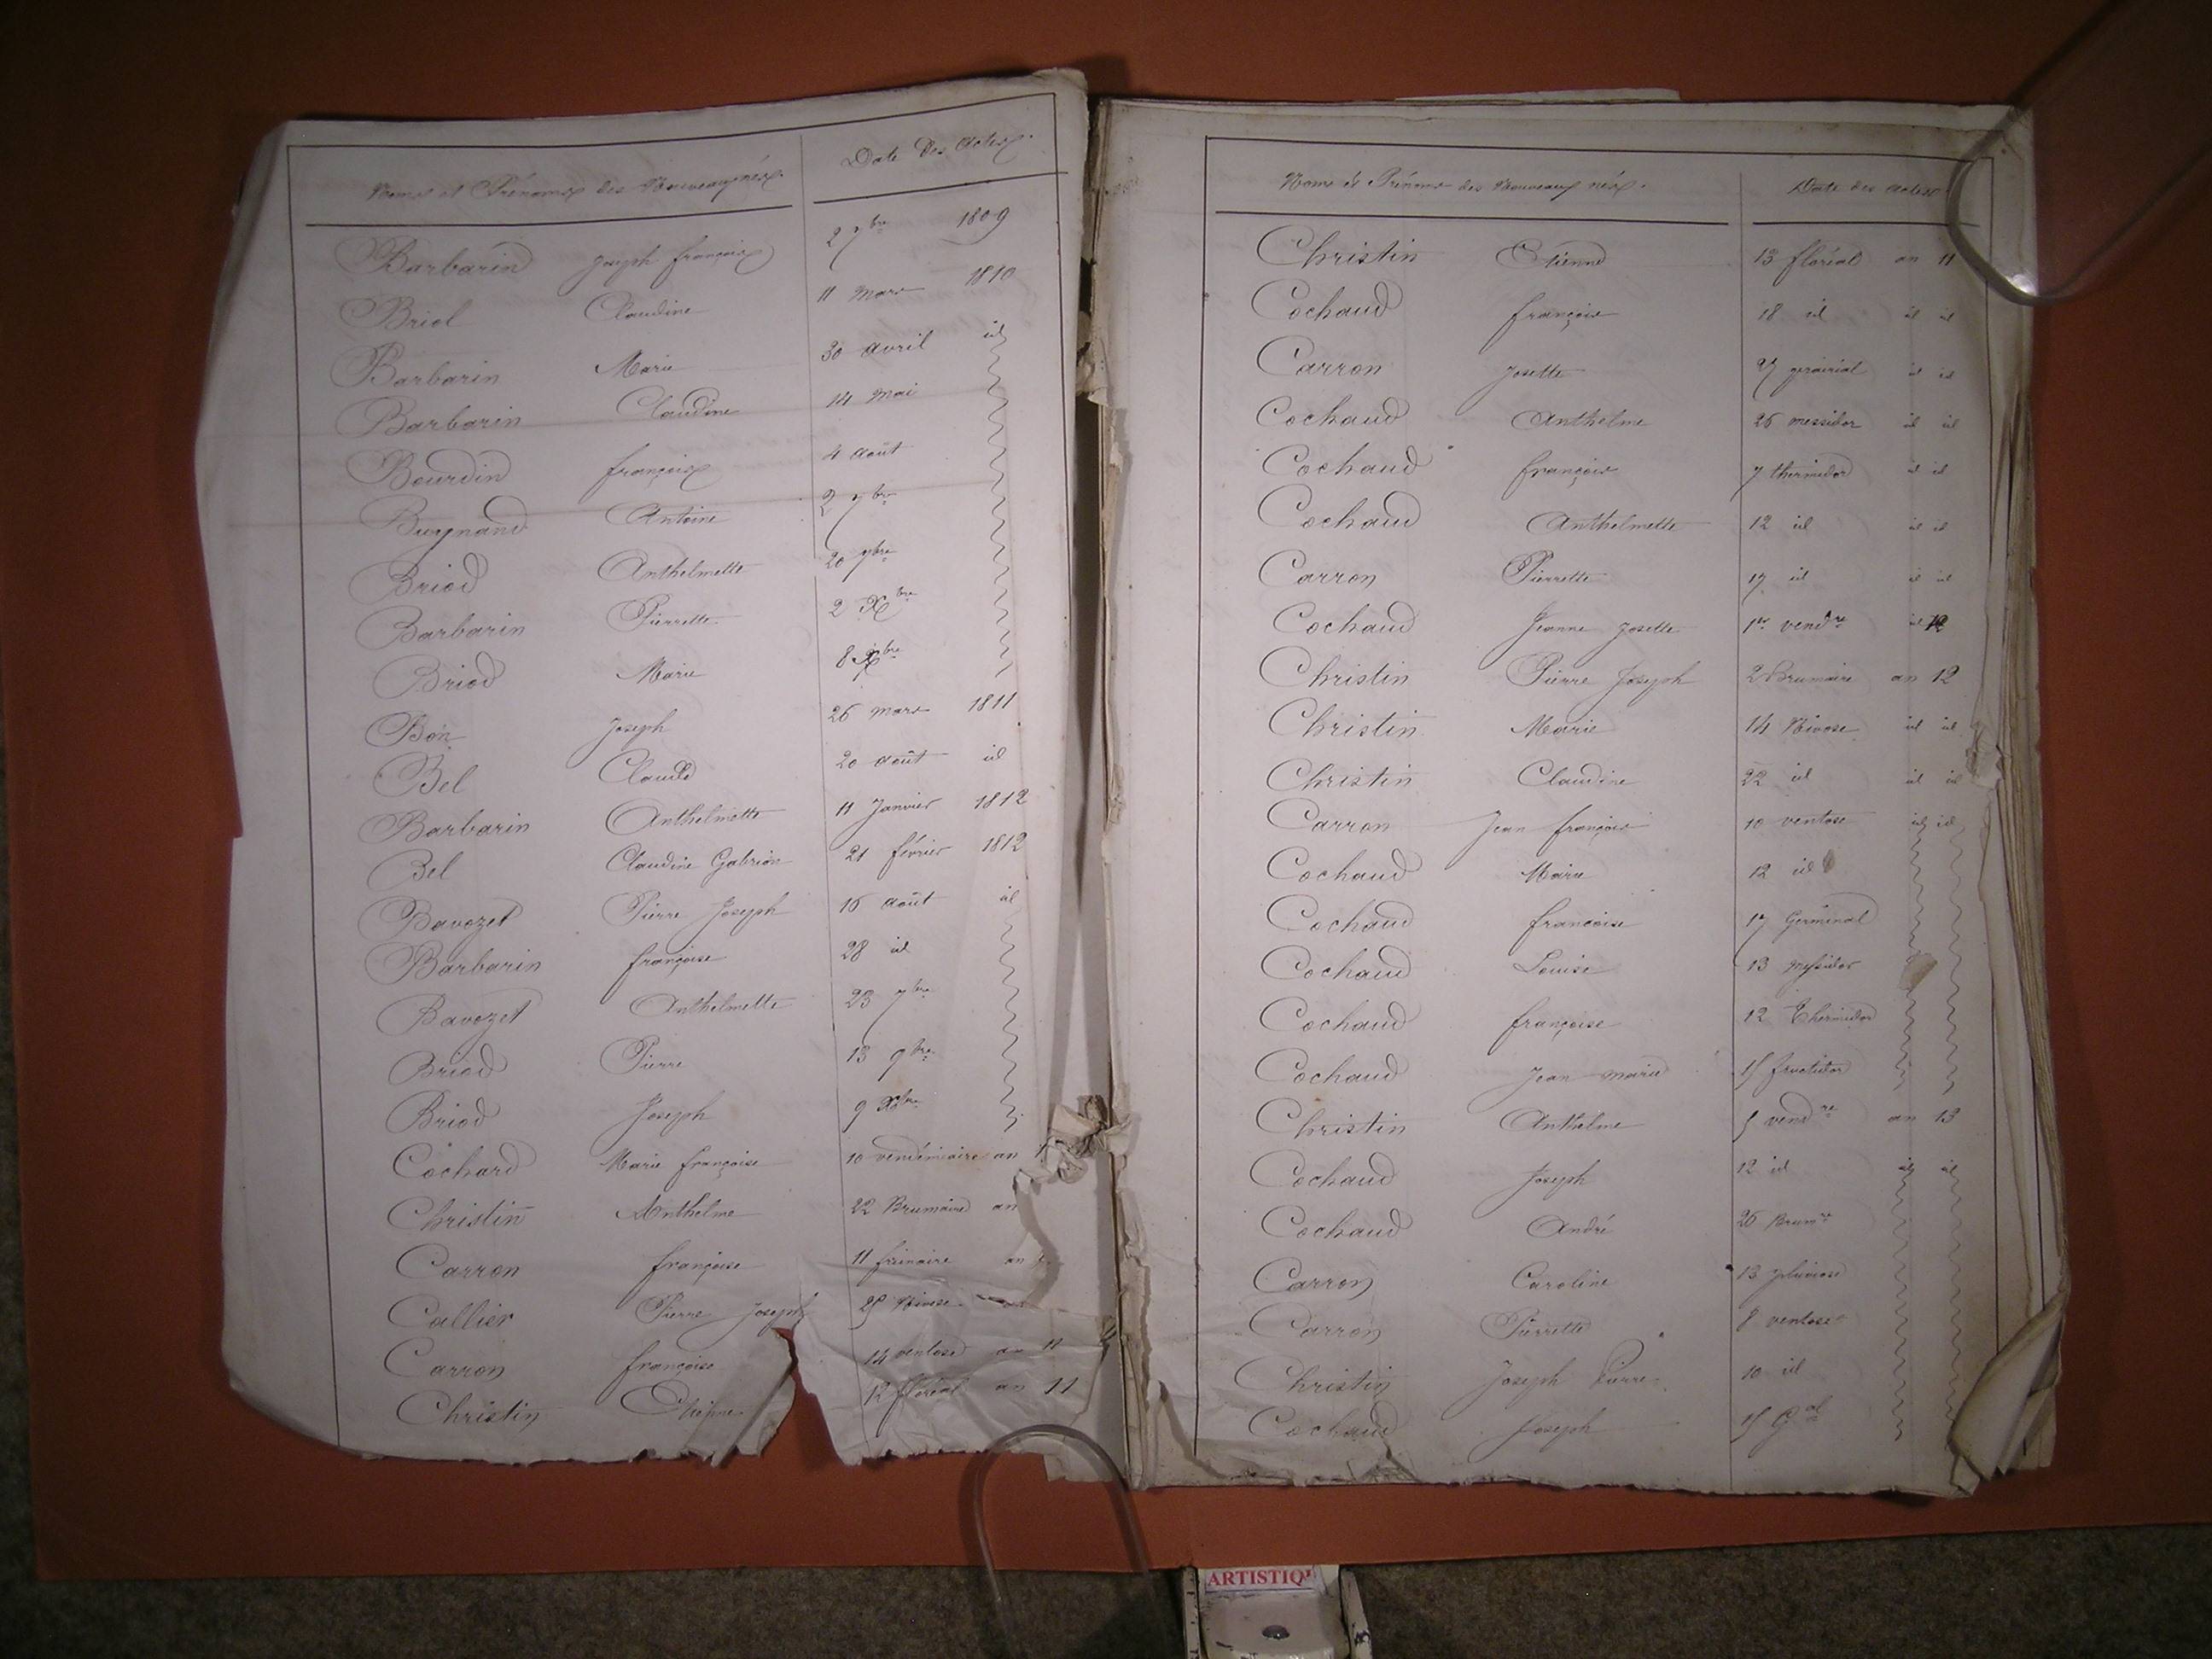 Noms et Prénoms des Nouveaux nés. Date des Actes.
Barbarin Joseph françois 2 7bre 1809
Briol Claudine 11 Mars 1810
Barbarin Marie 30 avril id
Barbarin Claudine 14 Mai
Bourdin françois 4 août
Bugnand Antoine 2 7bre
Briod Anthelmette 20 9bre
Barbarin Pierrette 2 Xbre
Briod Marie 8 Xbre
Bon Joseph 26 mars 1811
Bel Claude 20 août id
Barbarin Anthelmette 11 Janvier 1812
Bel Claudine 21 février 1812
Bavozet Pierre Joseph 16 août id
Barbarin françoise 28 id
Bavozet Anthelmette 23 7bre
Briod Pierre 13 9bre
Briod Joseph 9 Xbre
Cochard Marie françoise 10 vendémiaire an
Christin Anthelme 22 Brumaire an
Carron françoise 11 frimaire an
Callier Pierre Joseph Nivose
Carron françoise 14 ventose an 11
Christin Etienne 12 floréal an 11
Noms et Prénoms des Nouveaux nés. Date des Actes
Christin Etienne 13 floréal an 11
Cochaud françois 18 id id id
Carron Josette prairial id id
Cochaud Anthelme 26 messidor id id
Cochaud françois 7 thermidor id id
Cochaud Anthelmette 12 id id id
Carron Pierrette 17 id id id
Cochaud Jeanne Josette 1er vendre 12
Christin Pierre Joseph 2 Brumaire an 12
Christin Marie 14 Nivose id id
Christin Claudine 22 id id id
Carron Jean françois 10 ventose id id
Cochaud Marie 12 id
Cochaud françoise 17 Germinal
Cochaud Louise 13 Messidor
Cochaud françoise 12 Thermidor
Cochaud Jean marie 15 fructidor
Christin Anthelme 5 vendre an 13
Cochaud Joseph 12 id id id
Cochaud André 26 Brumre
Carron Caroline 13 pluviose
Carron Pierrette 8 ventose
Christin Joseph Pierre 10 id
Cochaud Joseph 15 Gal
ARTISTIQ